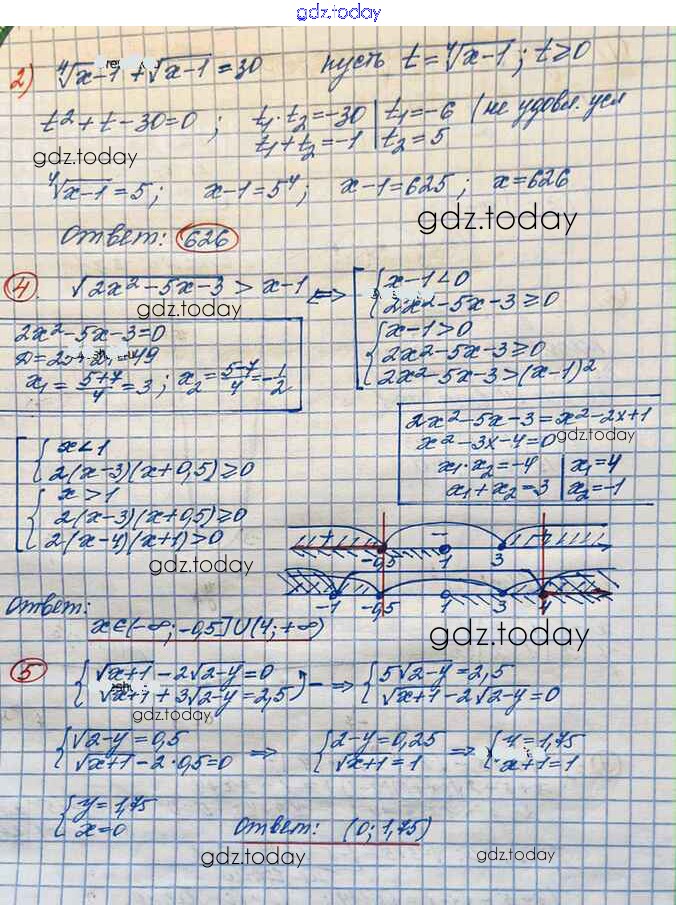 gdz.today
2) ⁴√x-1 + √x-1 = 30 пусть t = ⁴√x-1; t ≥ 0
t² + t - 30 = 0; t₁·t₂ = -30 | t₁ = -6 | не удовл. усл
t₁ + t₂ = -1 | t₂ = 5
gdz.today
⁴√x-1 = 5; x-1 = 5⁴; x-1 = 625; x = 626
gdz.today
Ответ: 626
4. √2x²-5x-3 > x-1 <=> [ { x-1<0
2x²-5x-3 ≥ 0
gdz.today
{ x-1>0
2x²-5x-3 ≥ 0
2x²-5x-3 > (x-1)²
2x²-5x-3=0
=49
x₁ = 5+7/4 = 3; x₂ = 5-7/4 = -1/2
2x²-5x-3 = x²-2x+1
x²-3x-4=0
gdz.today
x₁·x₂ = -4 | x₁ = 4
x₁+x₂ = 3 | x₂ = -1
[ { x<1
2(x-3)(x+0,5) ≥ 0
{ x>1
2(x-3)(x+0,5) ≥ 0
2(x-4)(x+1) > 0
gdz.today
+ -
-0,5 1 3
-1 -0,5 1 3 4
Ответ:
x∈(-∞; -0,5]∪(4; +∞)
gdz.today
5 { √x+1 - 2√2-y = 0
√x+1 + 3√2-y = 2,5 ) - => { 5√2-y = 2,5
√x+1 - 2√2-y = 0
gdz.today
{ √2-y = 0,5
√x+1 - 2·0,5 = 0 => { 2-y = 0,25
√x+1 = 1 => { y = 1,75
x+1 = 1
{ y = 1,75
x = 0
Ответ: (0; 1,75)
gdz.today
gdz.today